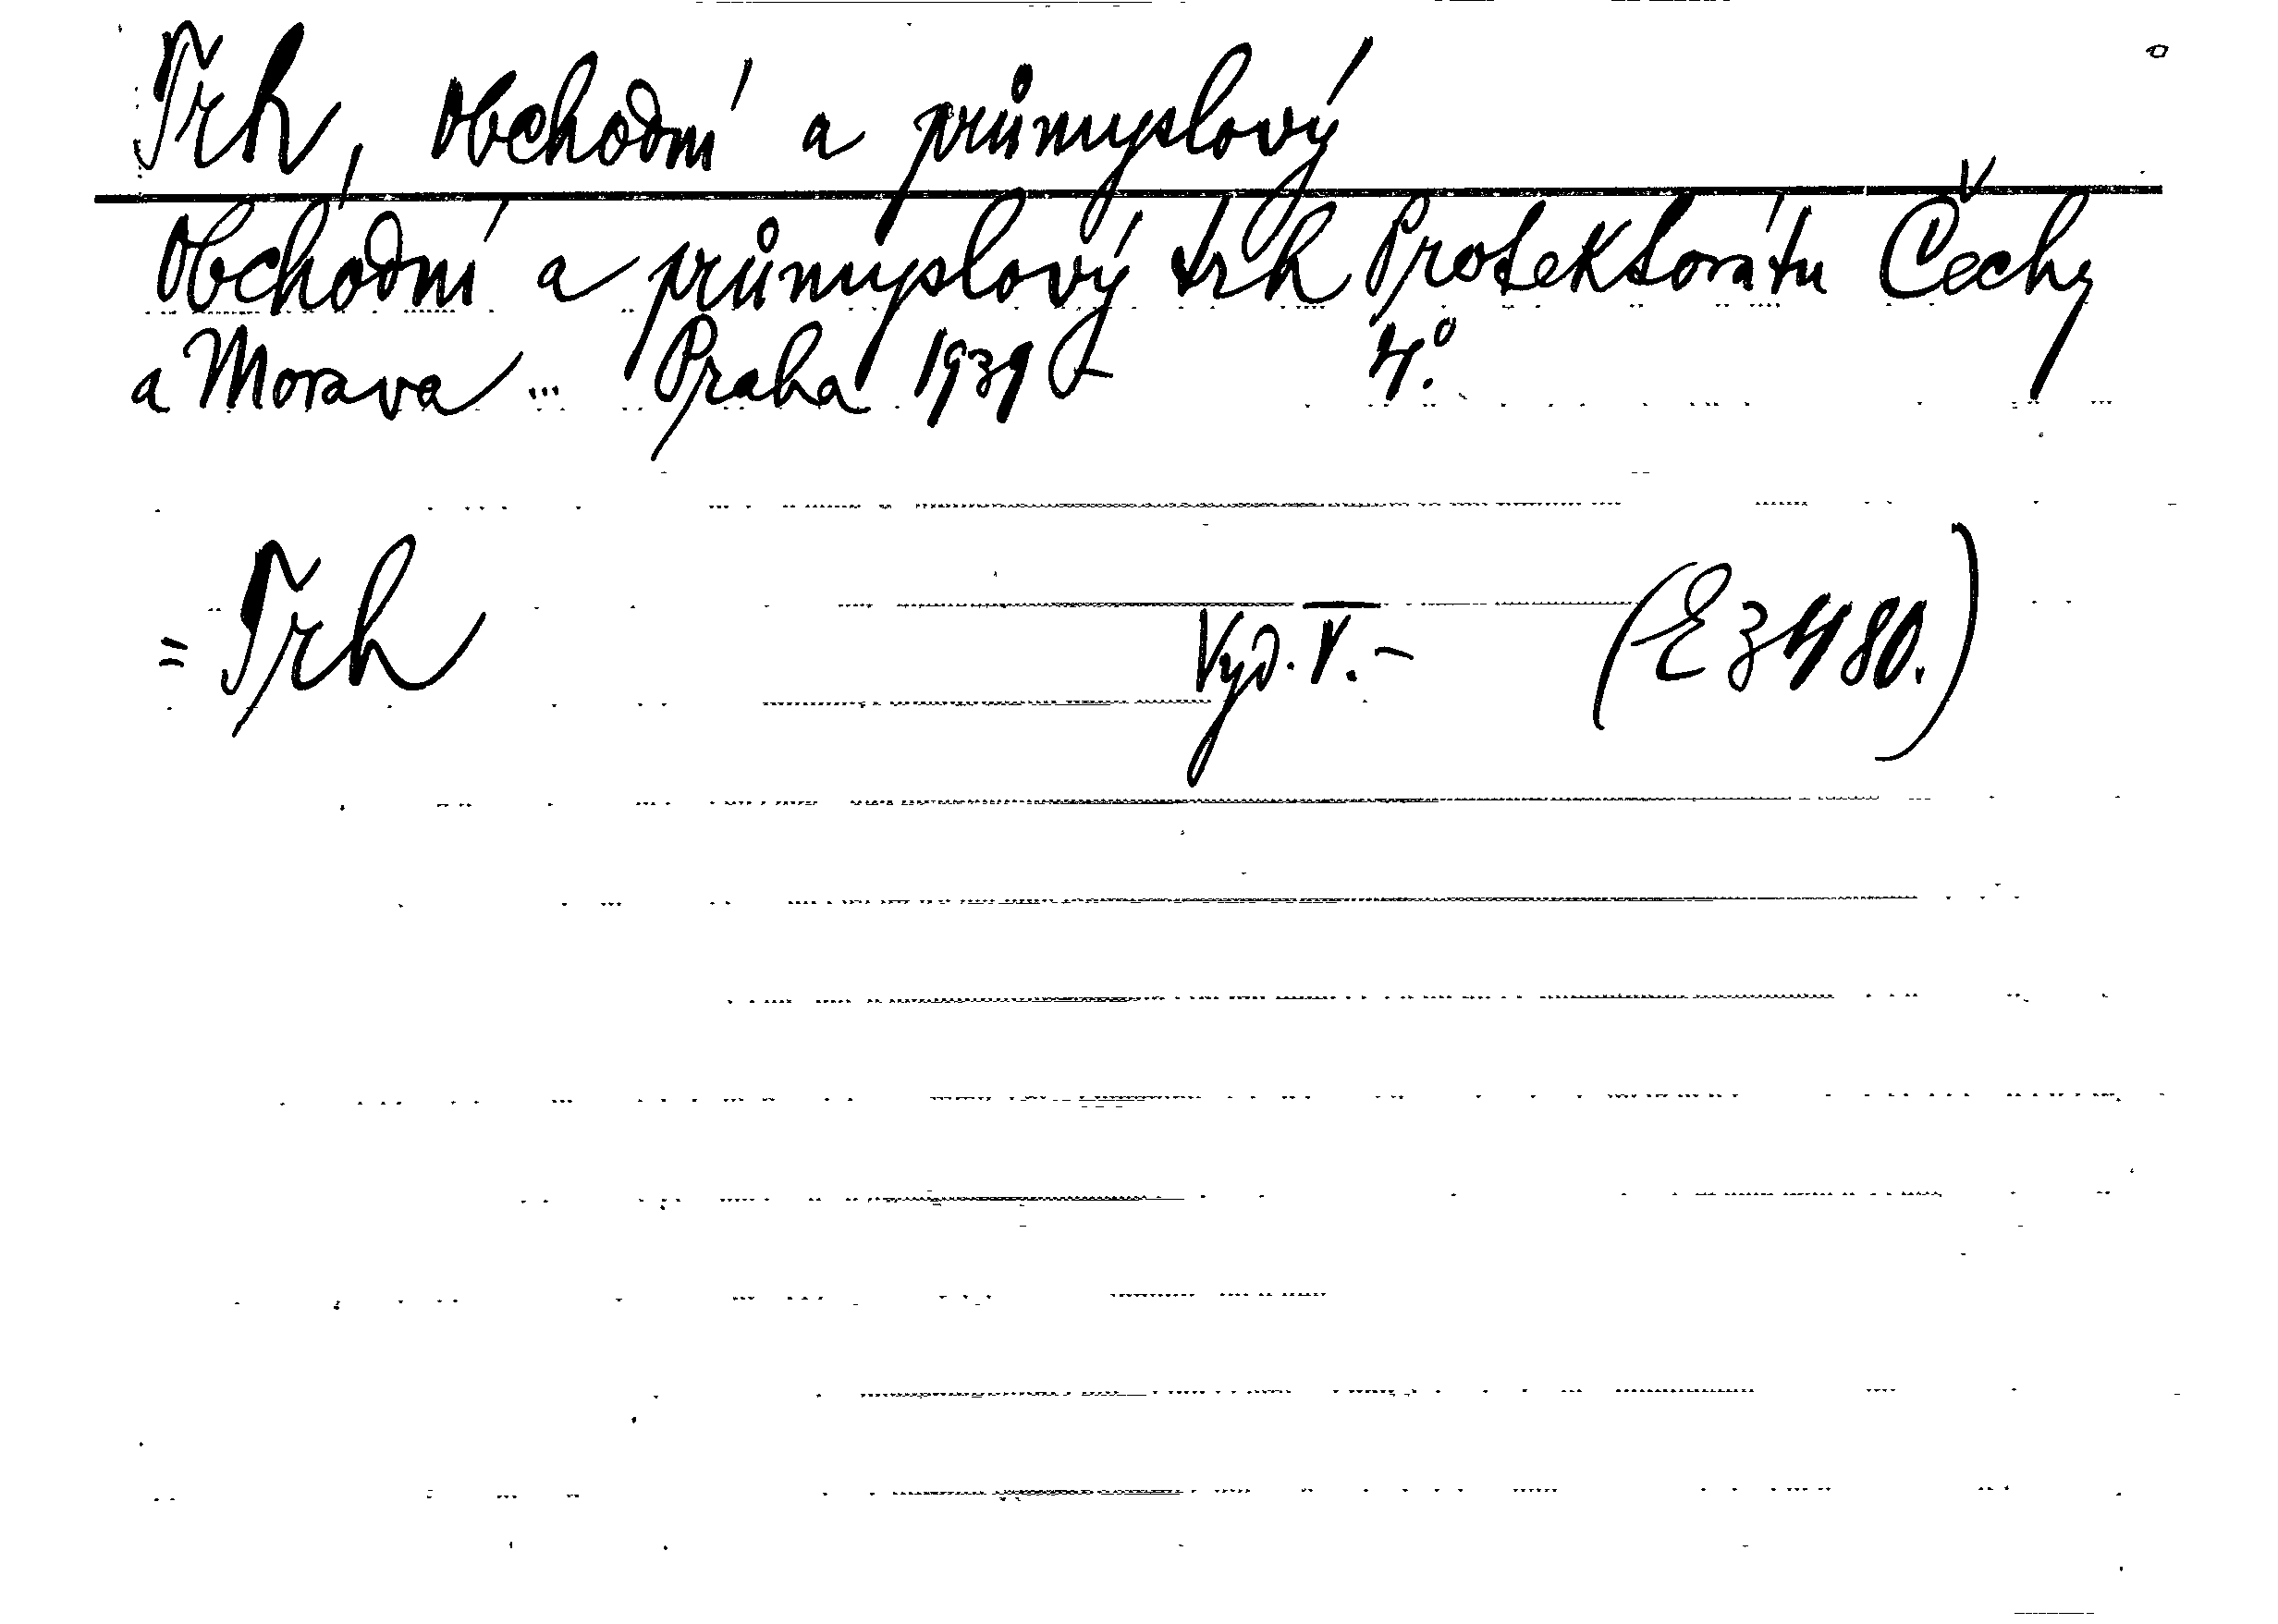 Trh, Obchodní a průmyslový
Obchodní a průmyslový trh Protektorátu Čechy
a Morava ... Praha 1939 - 4°.
= Trh Vyd. V. - (E 3480.)